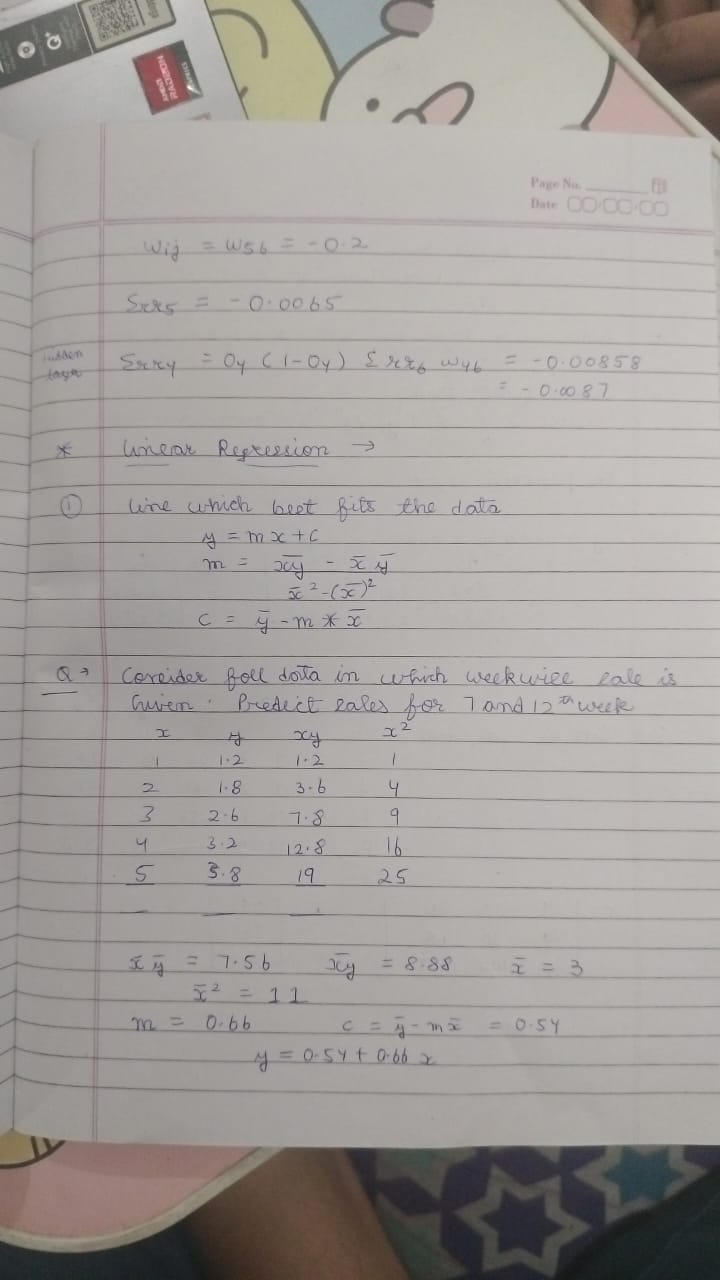 AMD
RADEON
Page No.
Date
Wij = W56 = -0.2
Err5 = -0.0065
hidden
layer
Erry = Oy (1-Oy) Σ rr6 wy6 = -0.00858
= -0.0087
* Linear Regression →
① Line which best fits the data
y = mx + c
m = x̅y̅ - x̅ y̅
x̅² - (x̅)²
c = y̅ - m * x̅
Q → Consider foll data in which weekwise sale is
Given. Predict sales for 7 and 12th week
x y xy x²
1 1.2 1.2 1
2 1.8 3.6 4
3 2.6 7.8 9
4 3.2 12.8 16
5 3.8 19 25
x̅ y̅ = 7.56 x̅y̅ = 8.88 x̅ = 3
x̅² = 11
m = 0.66 c = y̅ - mx̅ = 0.54
y = 0.54 + 0.66 x